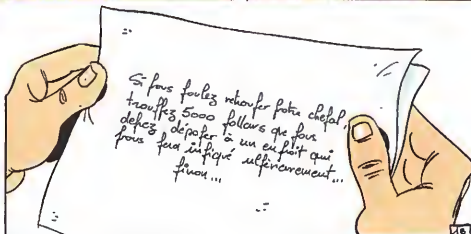 Si fous foulez rehoufer fotre chefal,
trouffez 5000 follars que fous
defiez dépofer à un enfroit qui
fous fera infiqué ulférieurement...
finon...
18